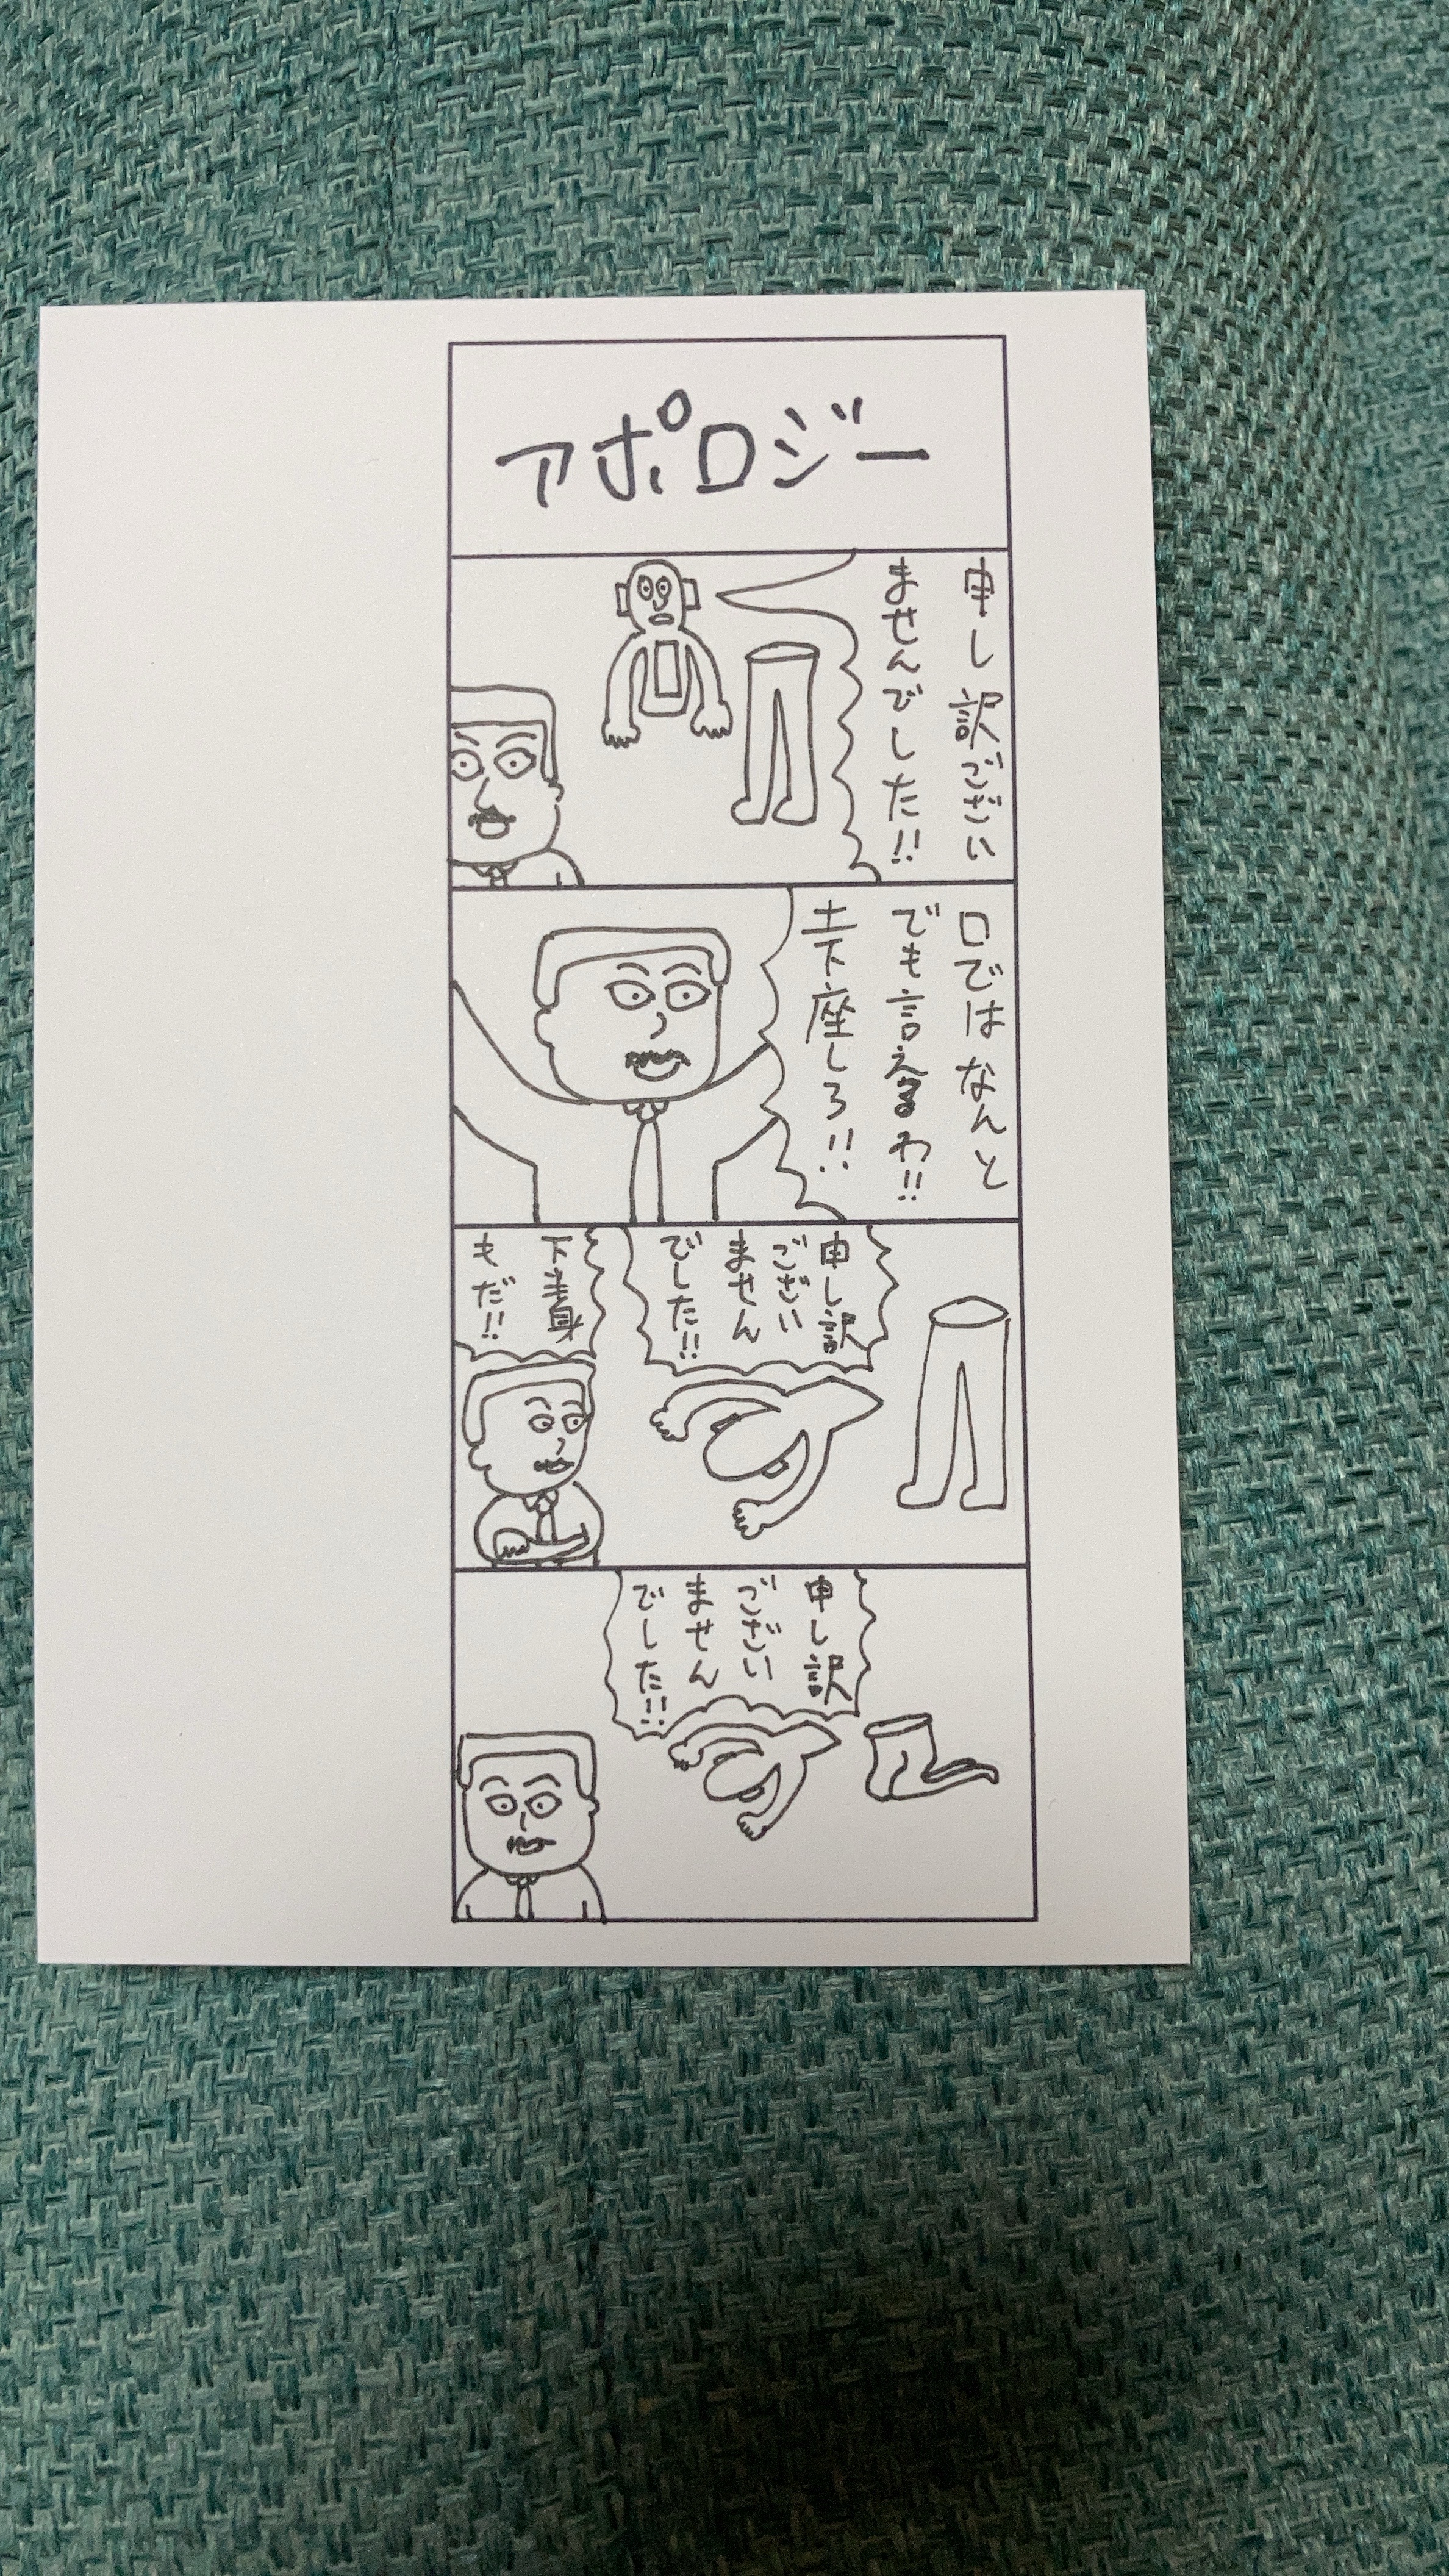 アポロジー
申し訳ござい
ませんでした!!
口ではなんと
でも言えるわ!!
土下座しろ!!
申し訳
ござい
ません
でした!!
下半身
もだ!!
申し訳
ござい
ません
でした!!